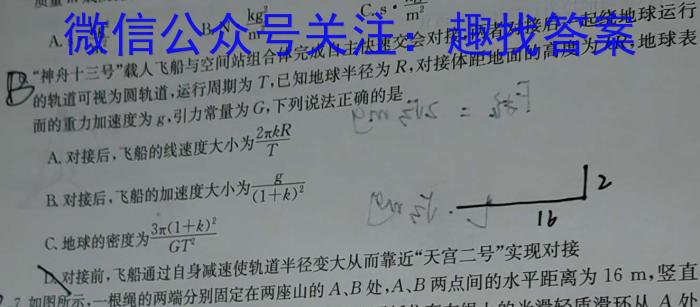 A.
B. kg²/m
C. s·
m²
微信公众号关注：趣找答案
B "神舟十三号"载人飞船与空间站组合体完成自主快速交会对接,两者对接后一起绕地球运行
的轨道可视为圆轨道,运行周期为T,已知地球半径为R,对接体距地面的高度为kR,地球表
面的重力加速度为g,引力常量为G,下列说法正确的是
A. 对接后,飞船的线速度大小为2πkR/T
B. 对接后,飞船的加速度大小为g/(1+k)²
2
16
C. 地球的密度为3π(1+k)²/GT²
D. 对接前,飞船通过自身减速使轨道半径变大从而靠近"天宫二号"实现对接
7. 如图所示,一根绳的两端分别固定在两座山的A、B处,A、B两点间的水平距离为16 m,竖直